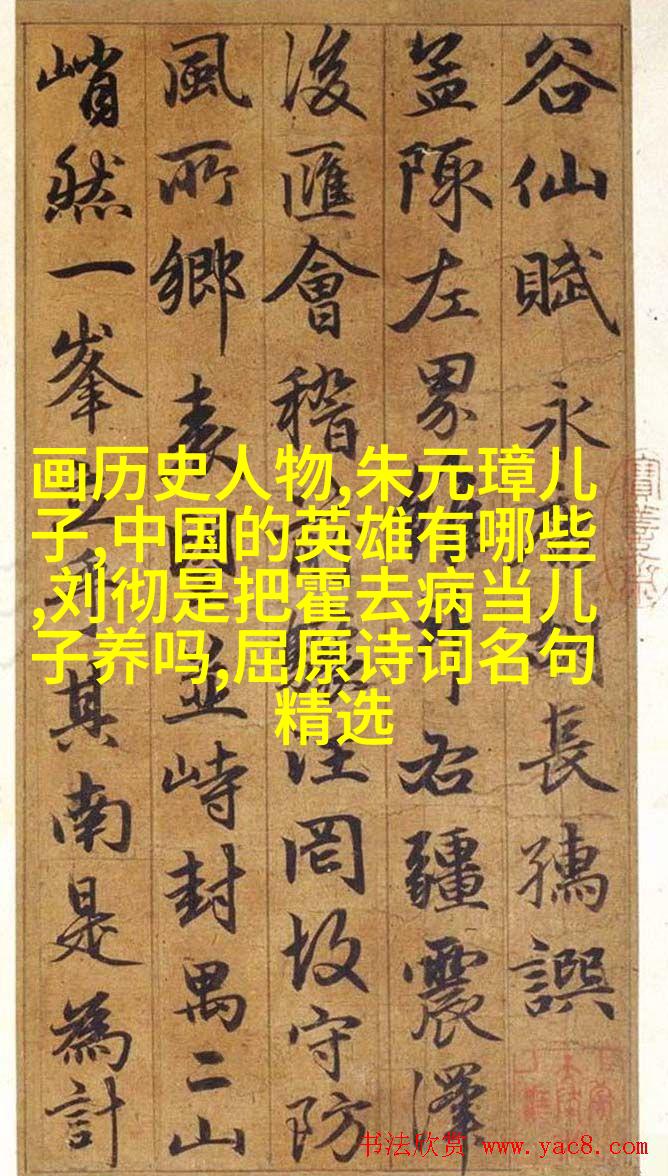 谷仙賦 永 長孺譔
盖陳左界 右疆震澤
後匯會稽 注罔攻守防
風所鄉表國並峙封禺二山
峭然一峯 其南是為計
画历史人物,朱元璋儿
子,中国的英雄有哪些
,刘彻是把霍去病当儿
子养吗,屈原诗词名句
精选
书法欣赏 www.yac8.com